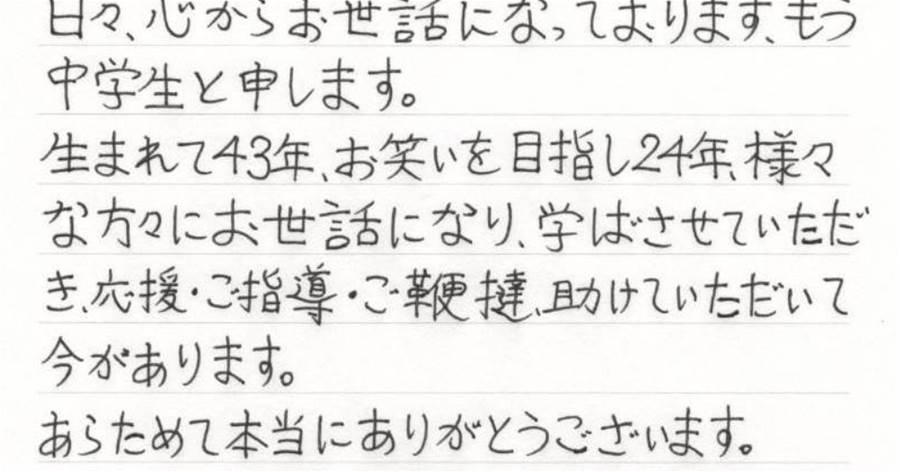 日々、心からお世話になっております、もう
中学生と申します。
生まれて43年、お笑いを目指し24年、様々
な方々にお世話になり、学ばさせていただ
き、応援・ご指導・ご鞭撻、助けていただいて
今があります。
あらためて本当にありがとうございます。